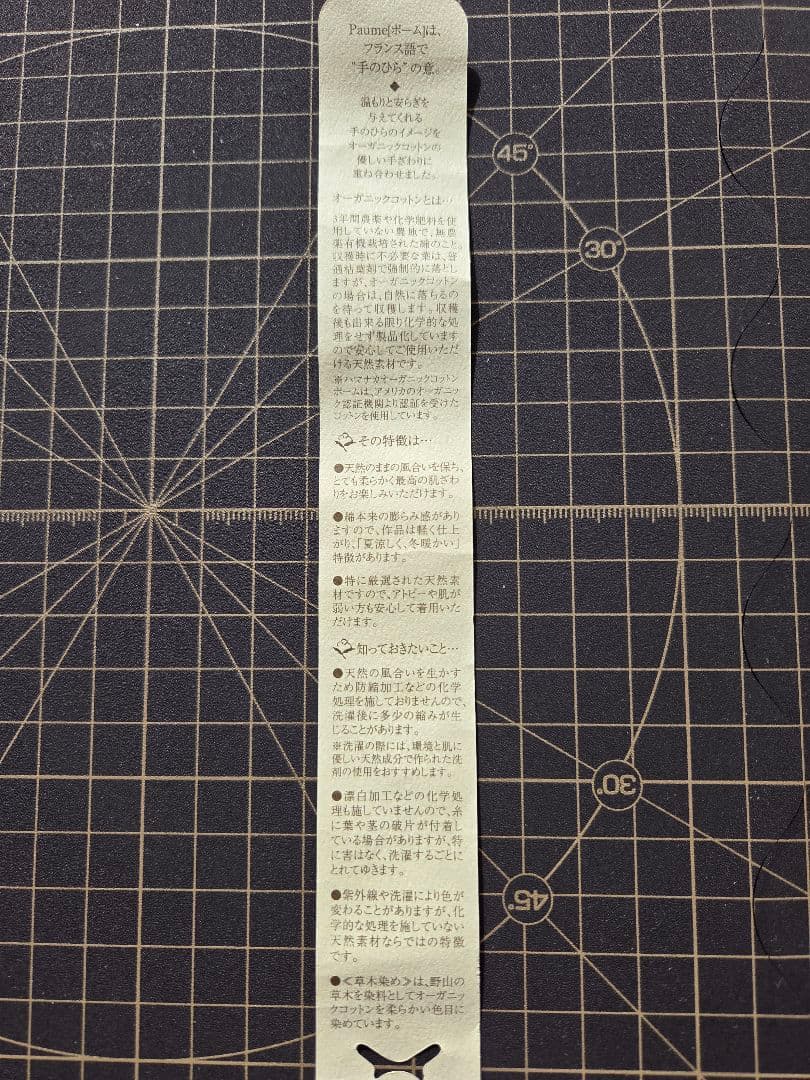 Paume[ポーム]は、
フランス語で
"手のひら"の意。
◆
温もりと安らぎを
与えてくれる
手のひらのイメージを
オーガニックコットンの
優しい手ざわりに
重ね合わせました。
オーガニックコットンとは…
3年間農薬や化学肥料を使
用していない農地で、無農
薬有機栽培された綿のこと。
収穫時に不必要な葉は、普
通枯葉剤で強制的に落とし
ますが、オーガニックコットン
の場合は、自然に落ちるの
を待って収穫します。収穫
後も出来る限り化学的な処
理をせず製品化しています
ので安心してご使用いただ
ける天然素材です。
※ハマナカオーガニックコットン
ポームは、アメリカのオーガニッ
ク認証機関より認証を受けた
コットンを使用しています。
その特徴は…
●天然のままの風合いを保ち、
とても柔らかく最高の肌ざわ
りをお楽しみいただけます。
●綿本来の膨らみ感があり
ますので、作品は軽く仕上
がり、「夏涼しく、冬暖かい」
特徴があります。
●特に厳選された天然素
材ですので、アトピーや肌が
弱い方も安心して着用いた
だけます。
知っておきたいこと…
●天然の風合いを生かす
ため防縮加工などの化学
処理を施しておりませんので、
洗濯後に多少の縮みが生
じることがあります。
※洗濯の際には、環境と肌に
優しい天然成分で作られた洗
剤の使用をおすすめします。
●漂白加工などの化学処
理も施していませんので、糸
に葉や茎の破片が付着し
ている場合がありますが、特
に害はなく、洗濯するごとに
とれてゆきます。
●紫外線や洗濯により色が
変わることがありますが、化
学的な処理を施していない
天然素材ならではの特徴
です。
●≪草木染め≫は、野山の
草木を染料としてオーガニッ
クコットンを柔らかい色目に
染めています。
45°
30°
30°
45°